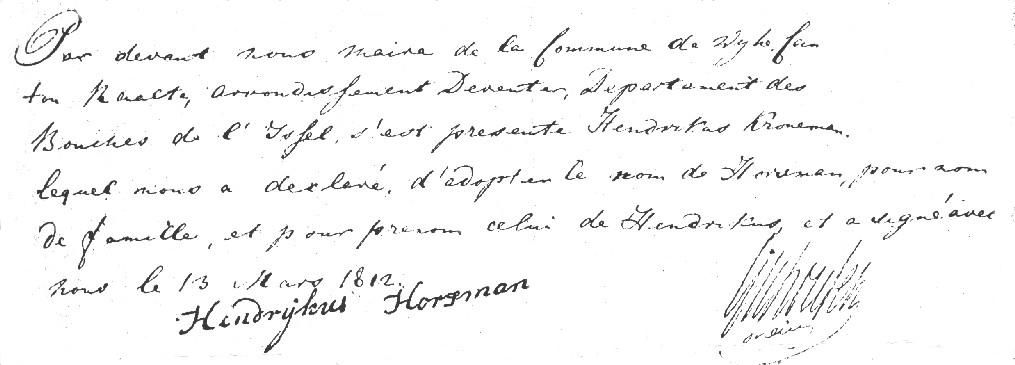 Par devant nous maire de la Commune de Wyhe, Can
ton Raalte, arrondissement Deventer, Departement des
Bouches de l'Issel, s'est presenté Hendrikus Kroneman.
lequel nous a declaré, d'adopter le nom de Horsman, pour nom
de famille, et pour prenom celui de Hendrikus, et a signé avec
nous le 13 Mars 1812.
Hendrijkus Horsman